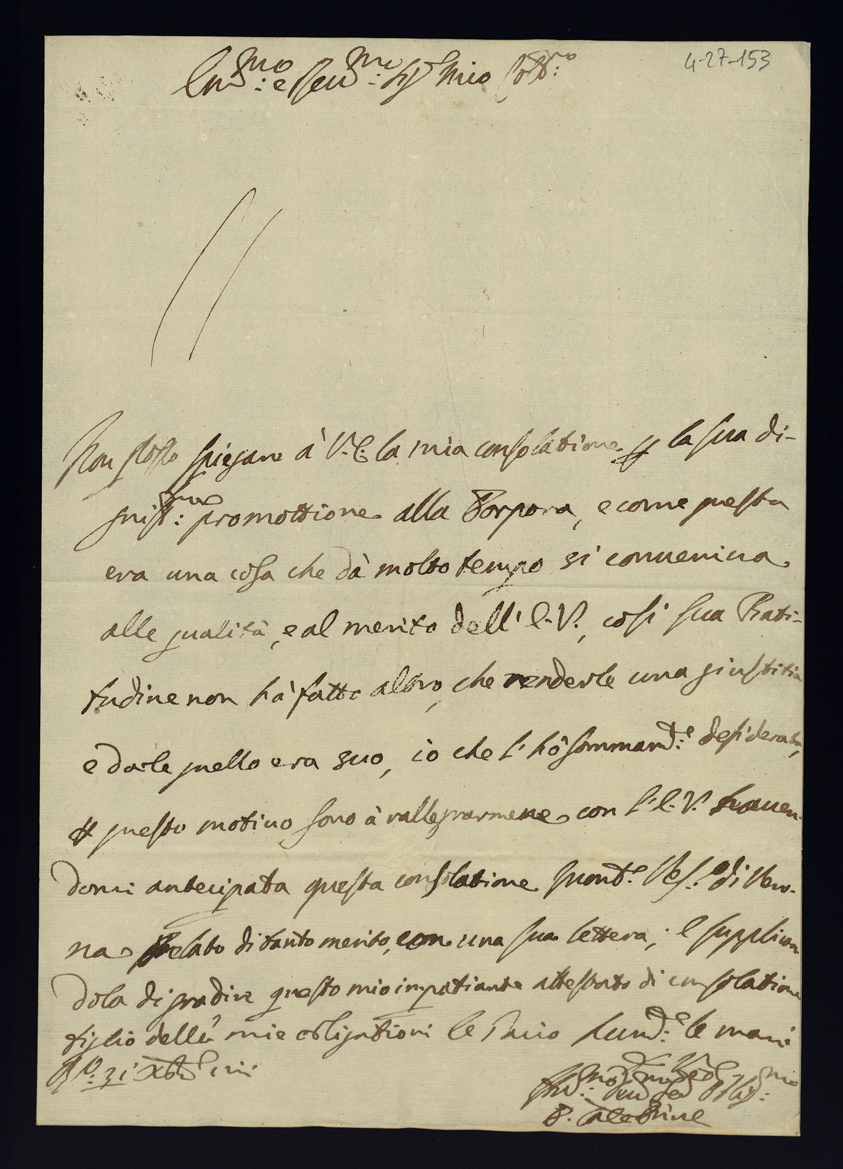 4-27-153
Em.mo e Reu.mo Sig.r mio Col.mo
Non posso spiegare à V.E. la mia consolatione p la sua di-
gniss.ma promottione alla Porpora, e come questa
era una cosa che dà molto tempo si conueniua
alle qualità, e al merito dell' E.V., cosi sua Beati-
tudine non hà fatto altro, che renderle una giustitia
e darle quello era suo, io che l' hò sommam.te desiderato,
p questo motiuo sono à rallegrarmene con l' E.V. hauen-
domi antecipata questa consolatione Mons.r Ves.o di Vero-
na Prelato di tanto merito, con una sua lettera; E supplican
dola di gradire questo mio impatiante attestato di consolatione
figlio delle mie obligationi le bacio hum.e le mani
31 Xbre